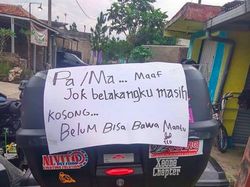 Pa/Ma... Maaf
Jok belakangku masih
Kosong...
Belum Bisa Bawa Mantu
Chapter